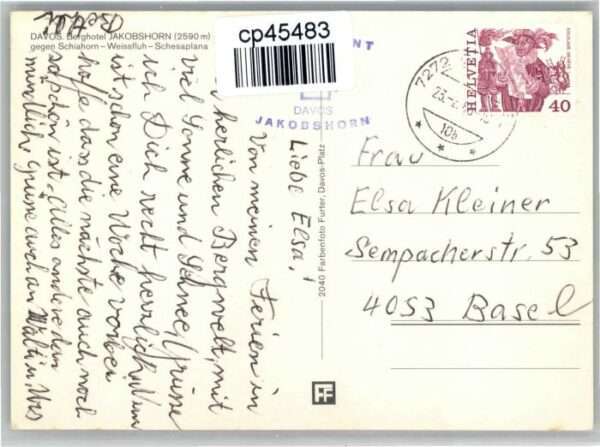 DAVOS. Berghotel JAKOBSHORN (2590 m)
gegen Schiahorn – Weissfluh – Schesaplana
cp45483
DAVOS
JAKOBSHORN
2040 Farbenfoto Furter, Davos-Platz
HELVETIA
40
7272
10b
Liebe Elsa!
Von meinen Ferien in
herlichen Bergwelt, mit
viel Sonne und Schnee, Grüsse
ich Dich recht herzlich. Nun
ist schon eine Woche vorbei
hoffe dass die nächste auch noch
so schön ist. Alles andere dann
mündlich. Grüsse auch an
Frau
Elsa Kleiner
Sempacherstr. 53
4053 Basel